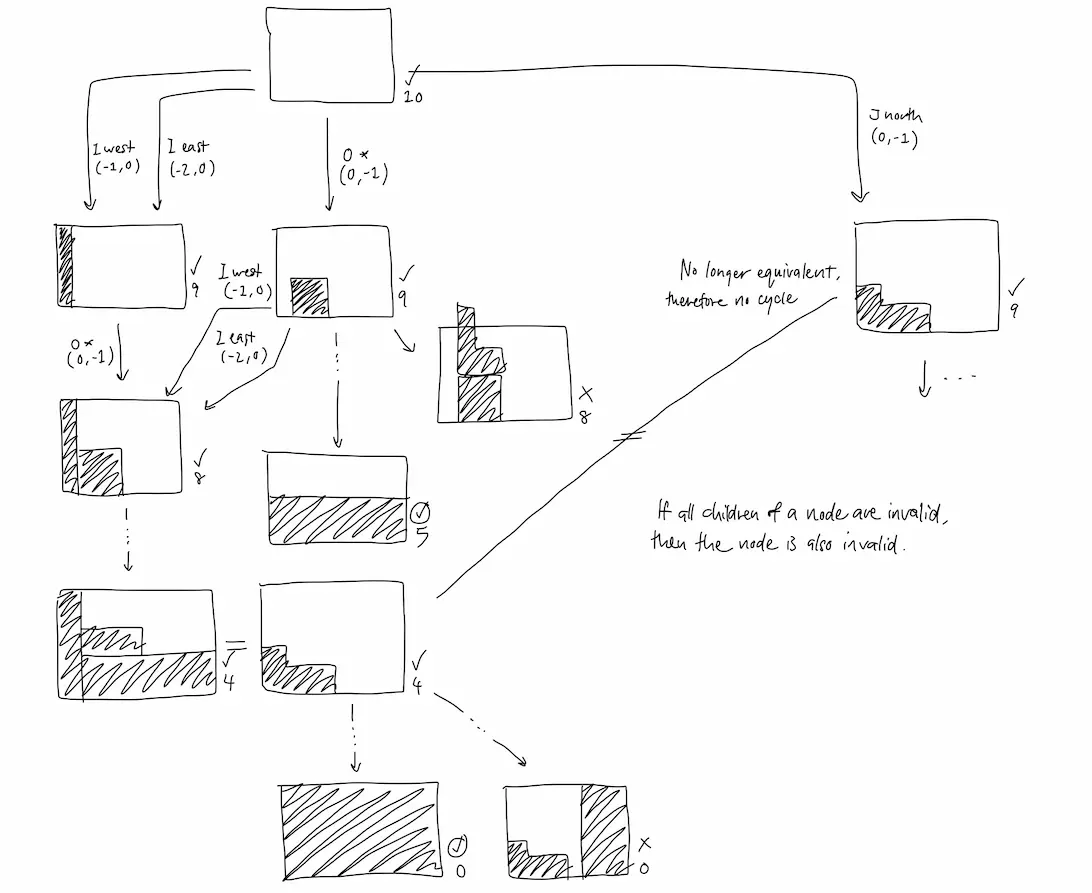 ✓
10
J north
(0,-1)
I west
(-1,0)
I east
(-2,0)
O *
(0,-1)
✓
9
I west
(-1,0)
✓
9
No longer equivalent,
therefore no cycle
✓
9
O *
(0,-1)
I east
(-2,0)
✓
8
×
8
...
✓
5
If all children of a node are invalid,
then the node is also invalid.
=
✓
4
✓
4
✓
0
×
0